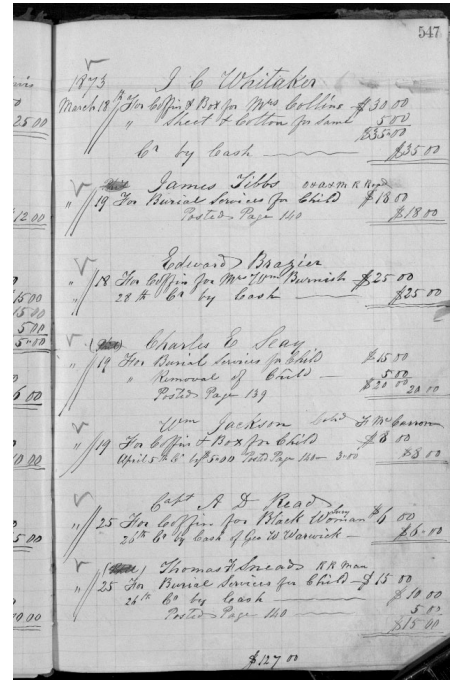 547
1873 J C Whitaker
March 18th For Coffin & Box for Mrs Collins $30 00
" Sheet & Cotton for same 5 00
$35 00
Cr by Cash $35 00
James Tibbs
" 19 For Burial Services for Child $18 00
Posted Page 140 $18 00
Edward Brazier
" 18 For Coffin for Mrs Wm Burnish $25 00
28th Cr by Cash $25 00
Charles E Seay
" 19 For Burial Services for Child $15 00
" Removal of Child 5 00
$20 00 20 00
Posted Page 139
Wm Jackson Cold
" 19 For Coffin & Box for Child $8 00
April 5th Cr by 5.00 Posted Page 140 3.00 $8 00
Capt A D Read
" 25 For Coffin for Black Woman Lucy $6 00
26th Cr by Cash of Geo W Warwick $6 00
Thomas F Sneads R R Man
" 25 For Burial Services for Child $15 00
26th Cr by Cash $10 00
Posted Page 140 5 00
$15 00
$127 00
25 00
12 00
15 00
15 00
5 00
5 00
6 00
0 00
5 00
0 00